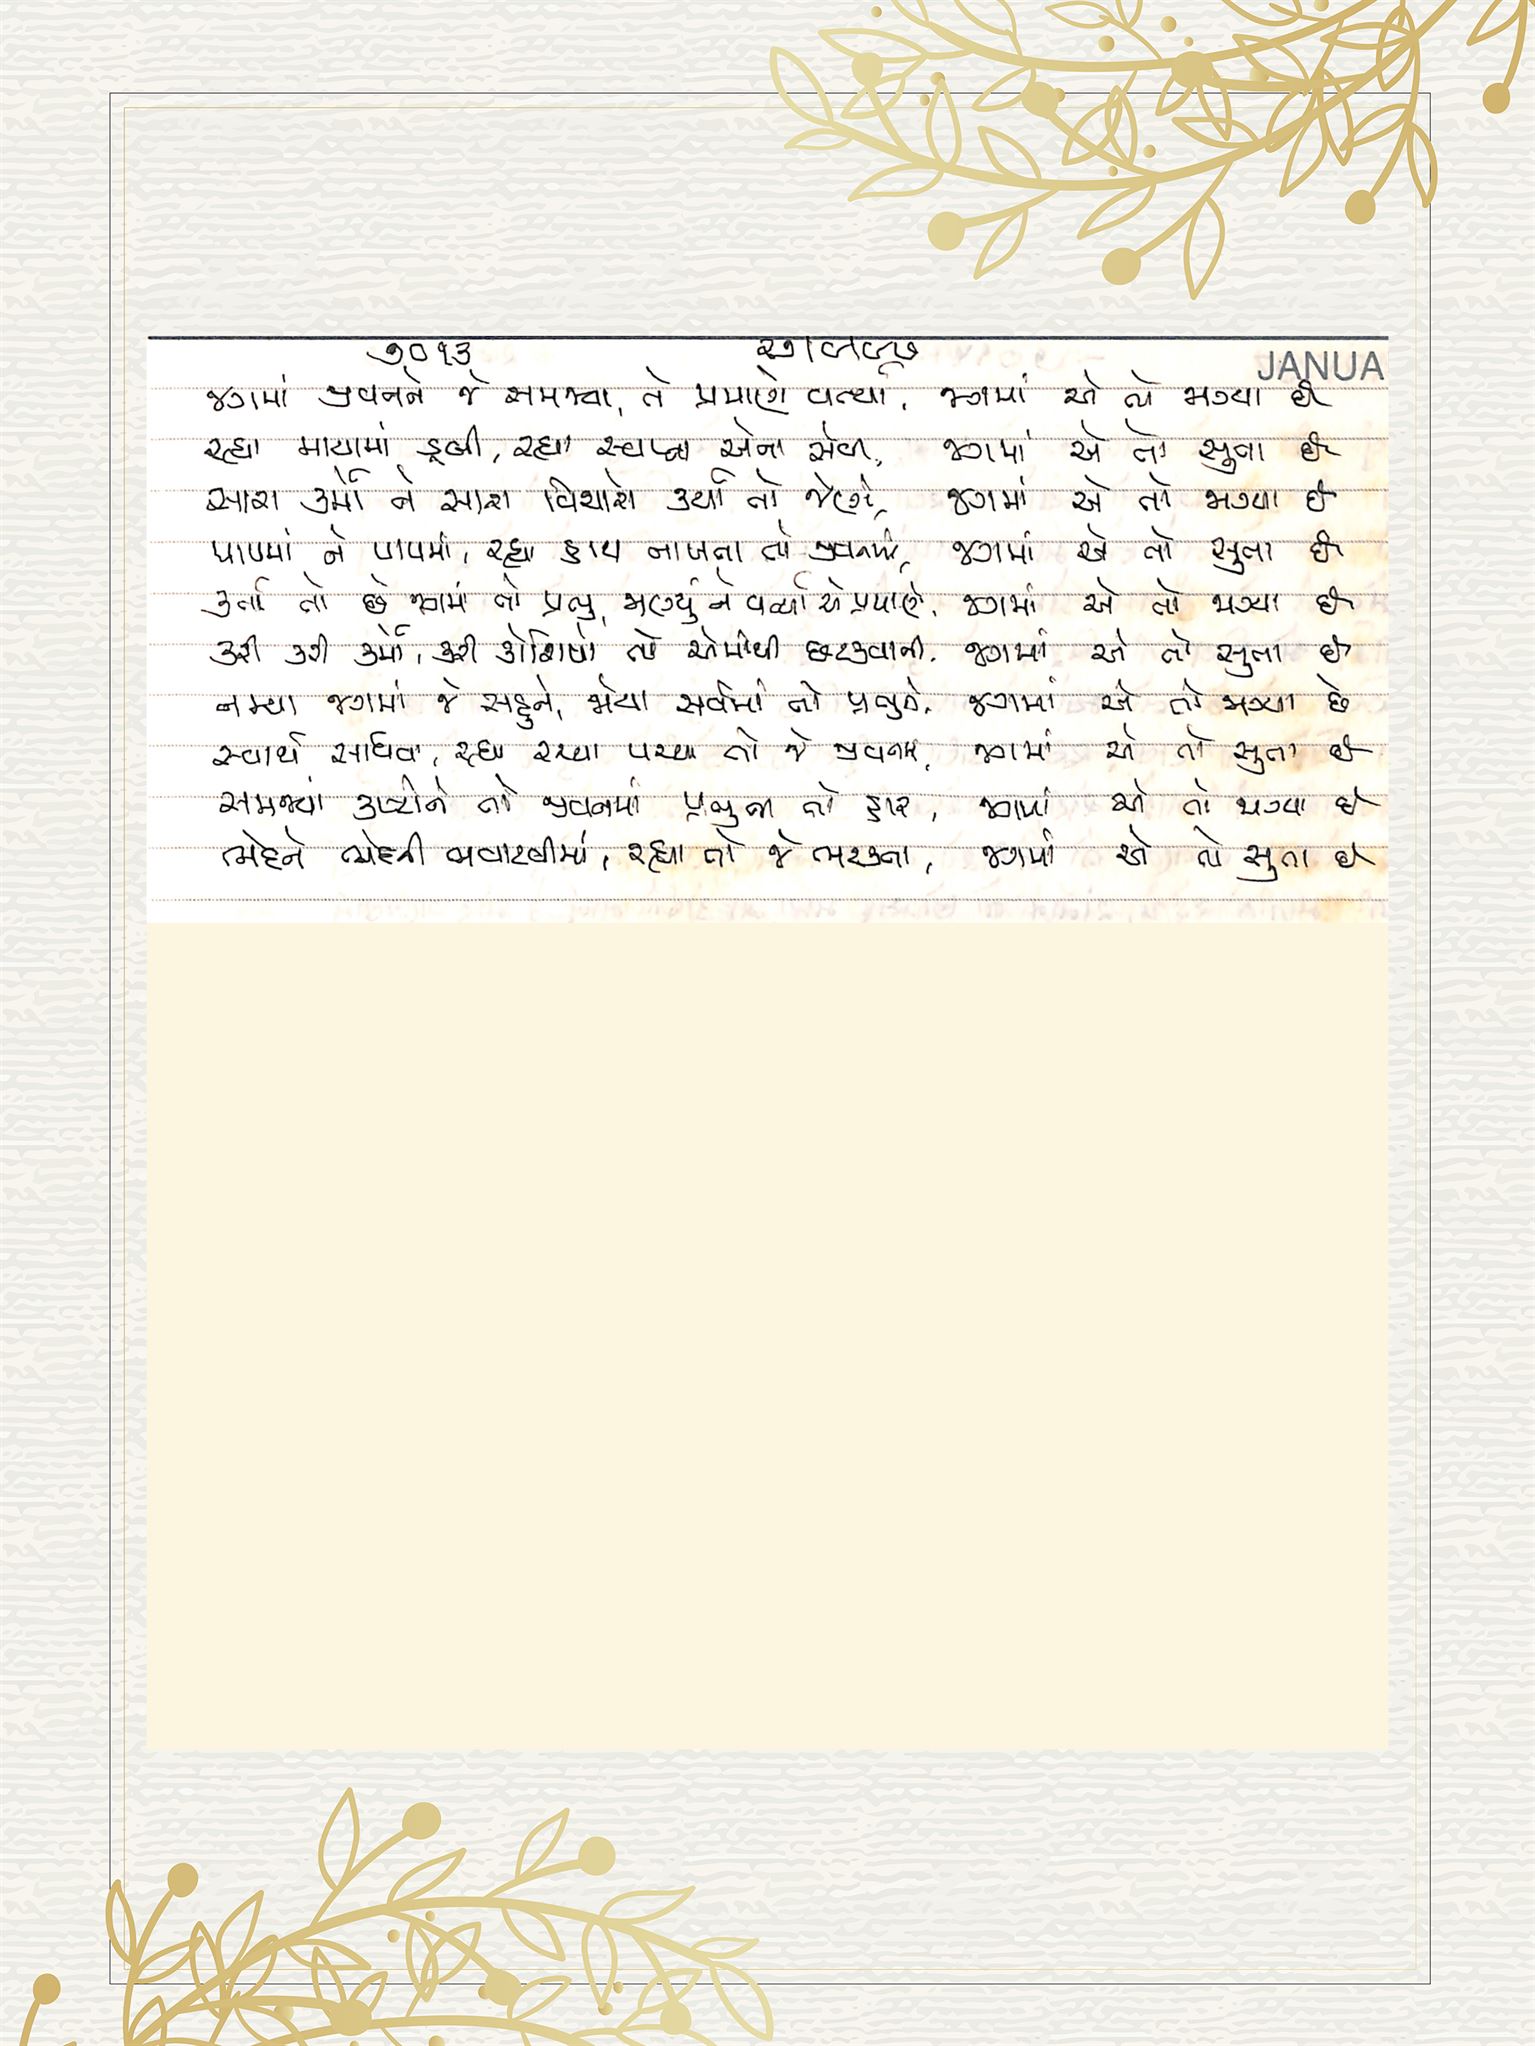 ૭૦૧૩
JANUA
જગમાં જીવનને જે સમજ્યા, તે પ્રમાણે વર્ત્યા, જગમાં એ તો જાગ્યા છે
રહ્યા માયામાં ડૂબી, રહ્યા સ્વપ્ના એના સેવી, જગમાં એ તો સુતા છે
સારા કર્મો ને સારા વિચારો કર્યા તો જેણે, જગમાં એ તો જાગ્યા છે
પાપમાં ને પાપમાં, રહ્યા હાથ નાખતા તો જીવનમાં, જગમાં એ તો સુતા છે
કર્તા તો છે જગમાં તો પ્રભુ, જાણ્યું ને વર્ત્યા એ પ્રમાણે, જગમાં એ તો જાગ્યા છે
કરી કરી કર્મો, કરી કોશિશો તો એમાંથી છટકવાની, જગમાં એ તો સુતા છે
નમ્યા જગમાં જે સહુને, જોયા સર્વમાં તો પ્રભુને, જગમાં એ તો જાગ્યા છે
સ્વાર્થ સાધવા, રહ્યા રચ્યા પચ્યા તો જે જીવનમાં, જગમાં એ તો સુતા છે
સમજ્યા કષ્ટોને તો જીવનમાં પ્રભુના તો હાર, જગમાં એ તો જાગ્યા છે
ભેદને ભેદની ભવાટવીમાં, રહ્યા તો જે ભટકતા, જગમાં એ તો સુતા છે